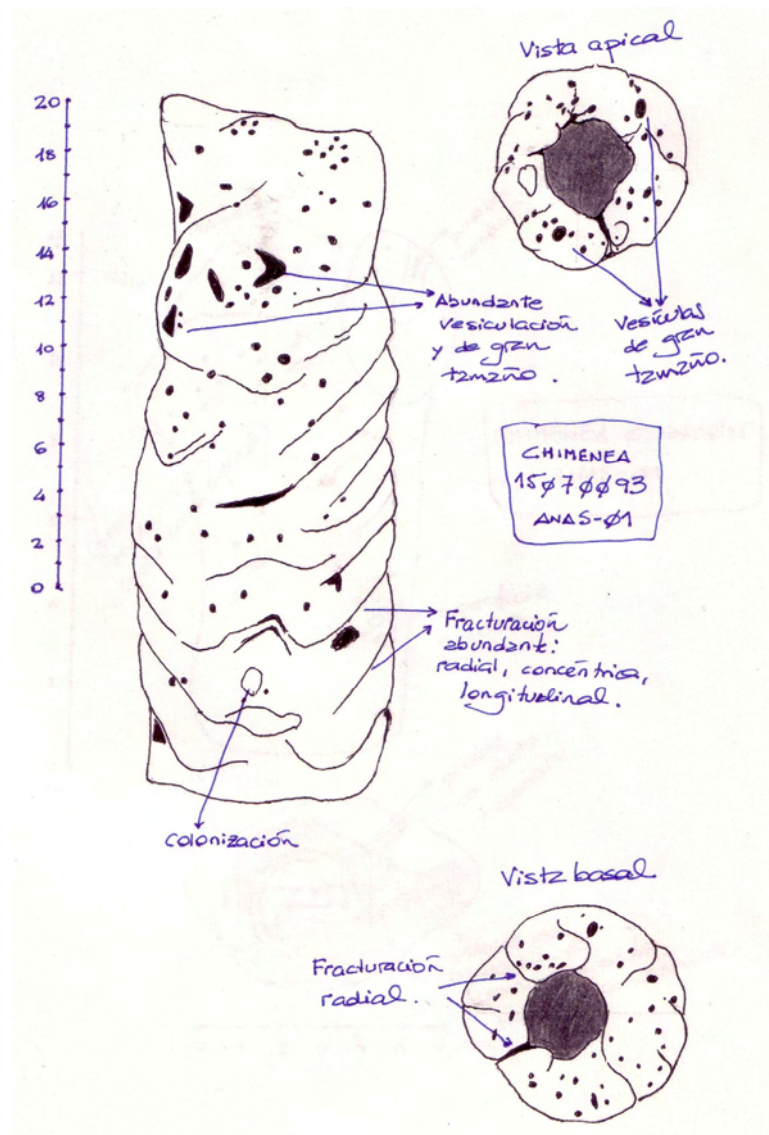 Vista apical
20
18
16
14
12
10
8
6
4
2
0
Abundante
vesiculación
y de gran
tamaño.
Vesículas
de gran
tamaño.
CHIMENEA
15070093
ANAS-01
Fracturación
abundante:
radial, concéntrica,
longitudinal.
Colonización
Vista basal
Fracturación
radial.